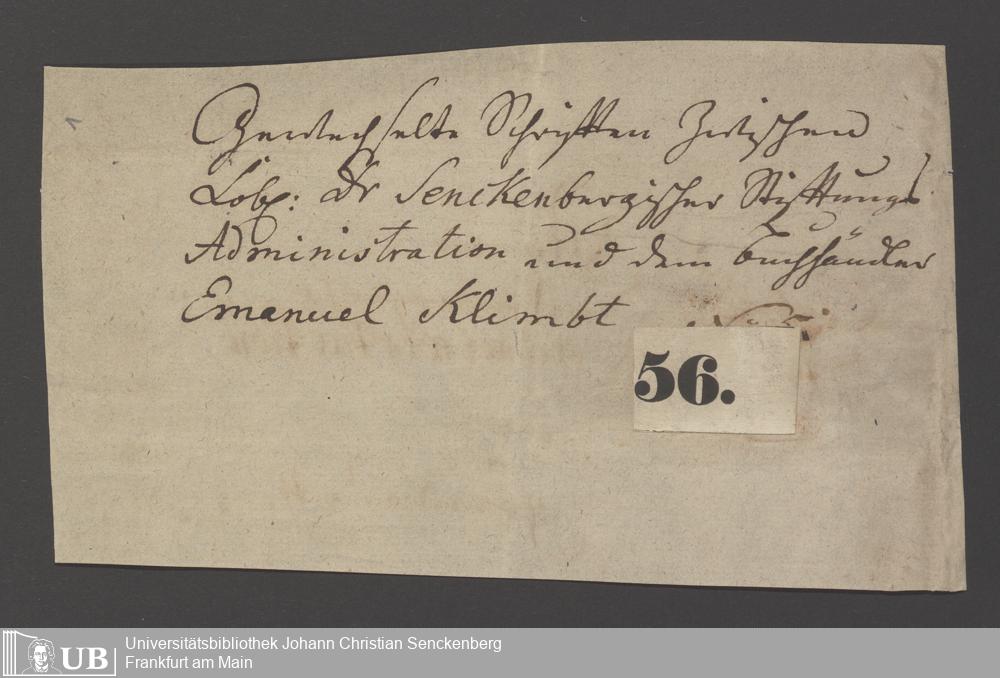 Gewechselte Schrifften Zwischen
Löbl: Dr Senckenbergischer Stifftungs
Administration und dem Buchhändler
Emanuel Klimbt
56.
UB
Universitätsbibliothek Johann Christian Senckenberg
Frankfurt am Main